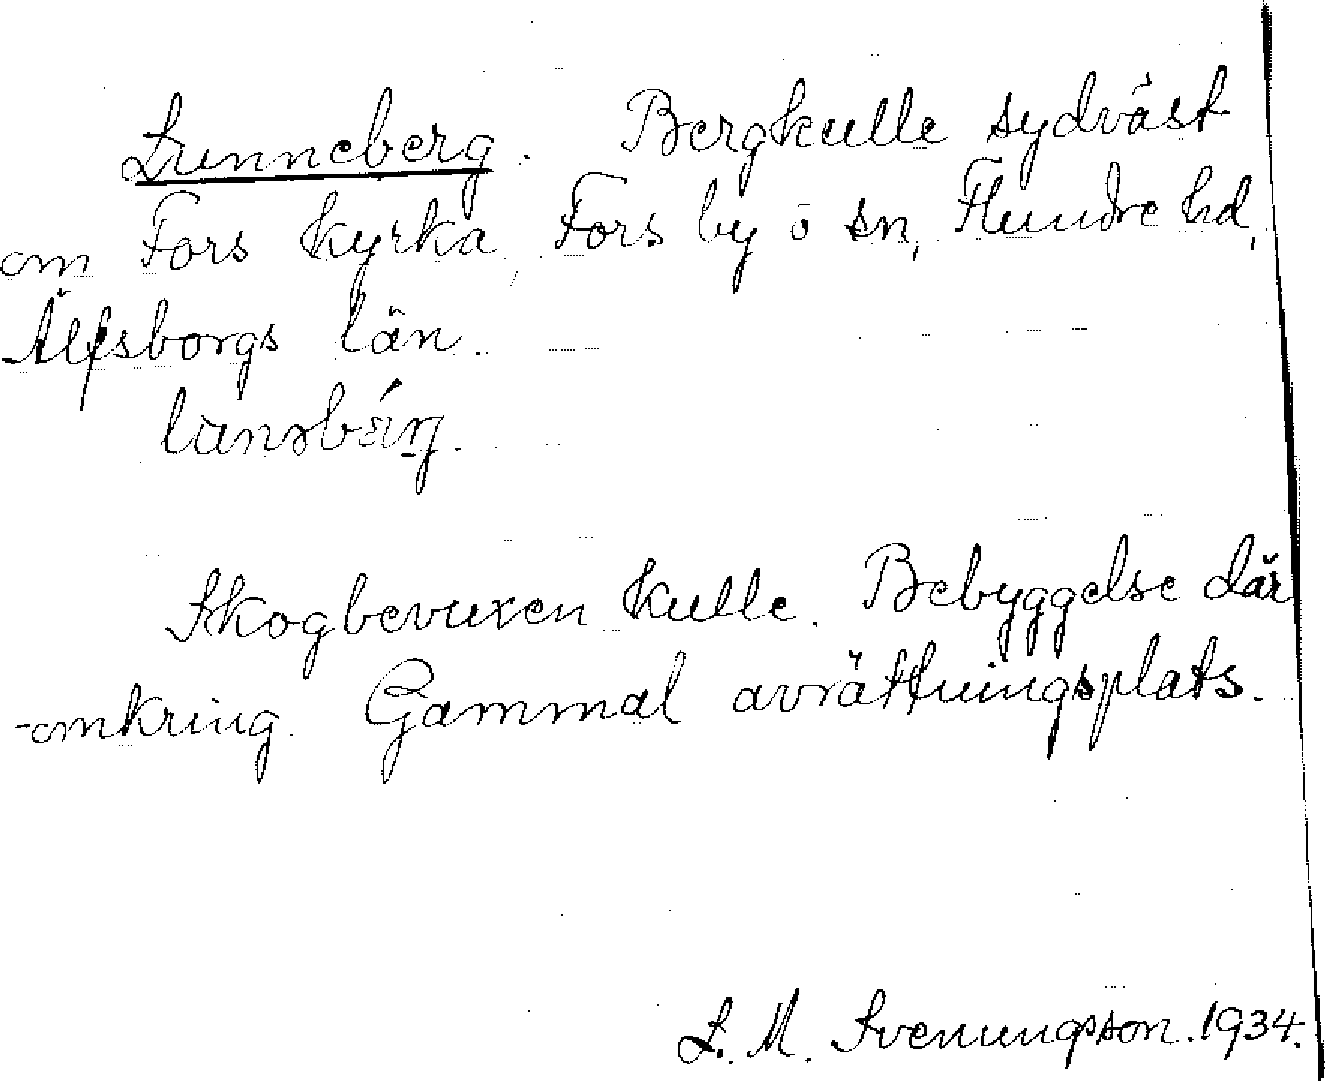 Lunneberg. Bergkulle sydväst
om Fors kyrka, Fors by o sn, Flundre hd,
Älfsborgs län.
Skogbevuxen kulle. Bebyggelse där
-omkring. Gammal avrättningsplats.
L. M. Svenungsson. 1934.